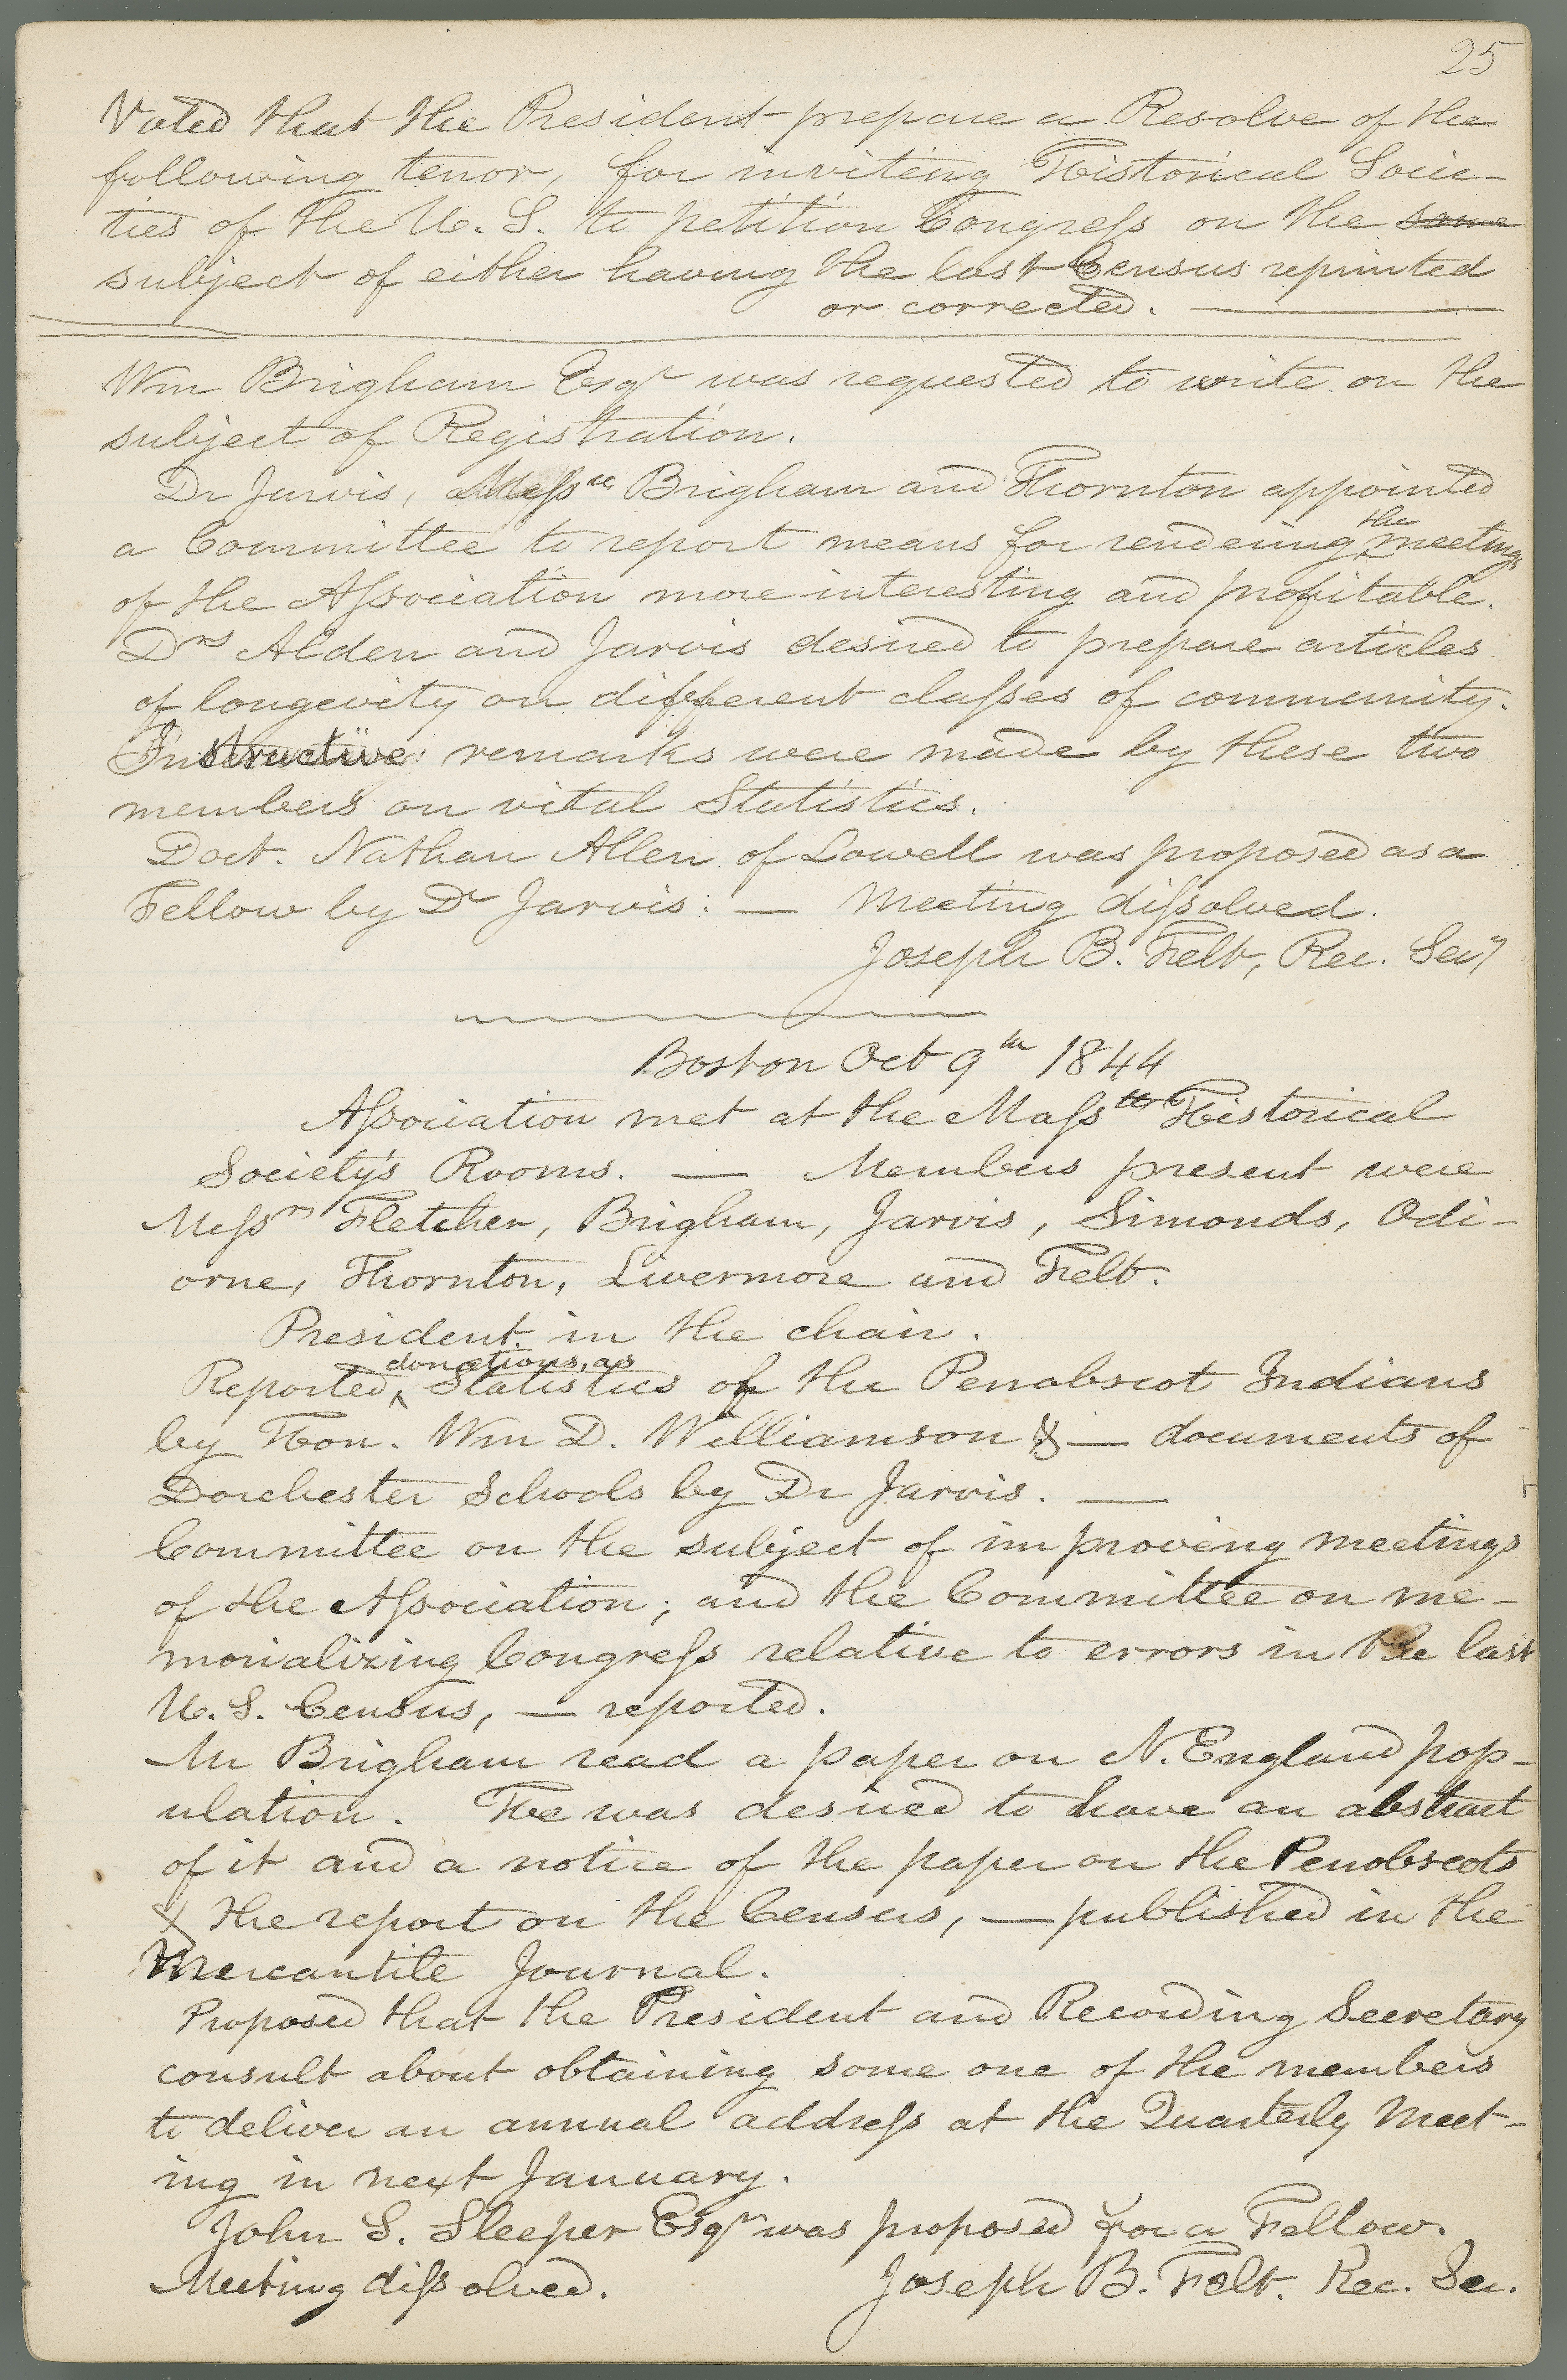 25
Voted that the President prepare a Resolve of the
following tenor, for inviting Historical Socie-
ties of the U. S. to petition Congress on the same
subject of either having the last Census reprinted
or corrected. —
Wm Brigham Esqr was requested to write on the
subject of Registration.
Dr Jarvis, Messrs Brigham and Thornton appointed
a Committee to report means for rendering the meetings
of the Association more interesting and profitable.
Drs Alden and Jarvis desired to prepare articles
of longevity on different classes of community.
Instructive remarks were made by these two
members on vital Statistics.
Doct. Nathan Allen of Lowell was proposed as a
Fellow by Dr Jarvis. — Meeting dissolved.
Joseph B. Felt, Rec. Secy
Boston Oct 9th 1844
Association met at the Mass tts Historical
Society's Rooms. — Members present were
Messrs Fletcher, Brigham, Jarvis, Simonds, Odi-
orne, Thornton, Livermore and Felt.
President in the chair.
Reported donations, as Statistics of the Penobscot Indians
by Hon. Wm D. Williamson & — documents of
Dorchester Schools by Dr Jarvis. —
Committee on the subject of improving meetings
of the Association; and the Committee on me-
morializing Congress relative to errors in the last
U. S. Census, — reported.
Mr Brigham read a paper on N. England pop-
ulation. He was desired to have an abstract
of it and a notice of the paper on the Penobscots
& the report on the Census, — published in the
Mercantile Journal.
Proposed that the President and Recording Secretary
consult about obtaining some one of the members
to deliver an annual address at the Quarterly Meet-
ing in next January.
John S. Sleeper Esqr was proposed for a Fellow.
Meeting dissolved. Joseph B. Felt. Rec. Sec.